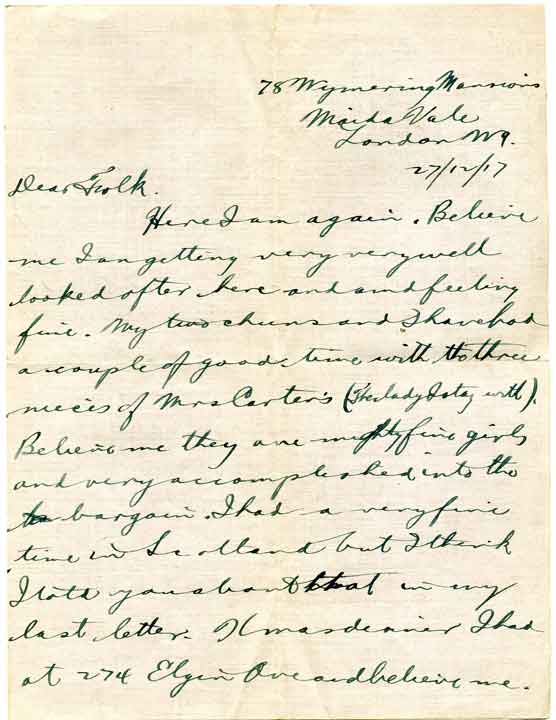 78 Wymering Mansions
Maida Vale
London W9.
27/12/17
Dear Folk.
Here I am again. Believe
me I am getting very very well
looked after here and am feeling
fine. My two chums and I have had
a couple of good time with the three
nieces of Mrs Carter's (The lady I stay with).
Believe me they are mighty fine girls
and very accomplished into the
bargain. I had a very fine
time in Scotland but I think
I told you about that in my
last letter. Xmas dinner I had
at 274 Elgin Ave and believe me.